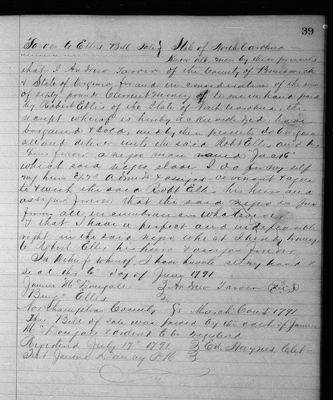 39
to Ellis Bill Sale } State of North Carolina
Know all men by these presents
that I Andrew of the County of Brunswick
& State of Virginia for and in consideration of the sum
of sixty pounds Current money to me in hand paid
by Robert Ellis of the State of North Carolina, the
receipt whereof is hereby acknowledged have
bargained & sold, and by these presents do bargain
and deliver unto the said Robt Ellis and his
heirs forever a negro man named Jacob
which said negro slave I do for my self
my heirs Exrs Admrs & assigns covenant & agree
to & with the said Robt Ellis his heirs and
assigns forever that the said negro is free
from all incumbrances whatsoever
& that I have a perfect and indefeasible
right in the said negro which I hereby
to Robert Ellis his heirs & assigns forever
In Witness whereof I have hereunto set my hand &
seal this 6th day of June 1791.
James McDougall } Andrew (Seal)
Benjn Ellis }
Northampton County Sc March Court 1791
This Bill of Sale was proved by the oath of James
McDougall & ordered to be registered
Registered July 19th 1791 } Ed. Haynes Clk
Test James